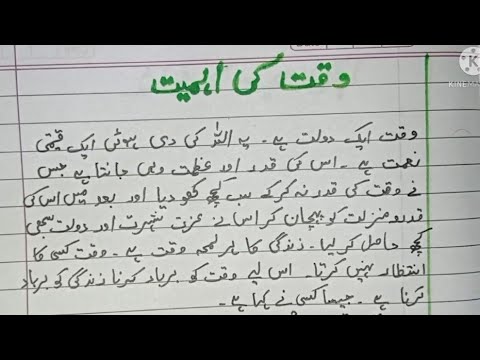 وقت کی اہمیت
وقت ایک دولت ہے۔ یہ اللہ کی دی ہوئی ایک قیمتی
نعمت ہے۔ اس کی قدر اور عظمت وہی جانتا ہے جس
نے وقت کی قدر نہ کر کے سب کچھ کھو دیا اور بعد میں اس کی
قدرو منزلت کو پہچان کر اس نے عزت شہرت اور دولت سبھی
کچھ حاصل کر لیا۔ زندگی کا ہر لمحہ وقت ہے۔ وقت کسی کا
انتظار نہیں کرتا۔ اس لیے وقت کو برباد کرنا زندگی کو برباد
کرنا ہے۔ جیسا کسی نے کہا ہے۔
K
KINEMA